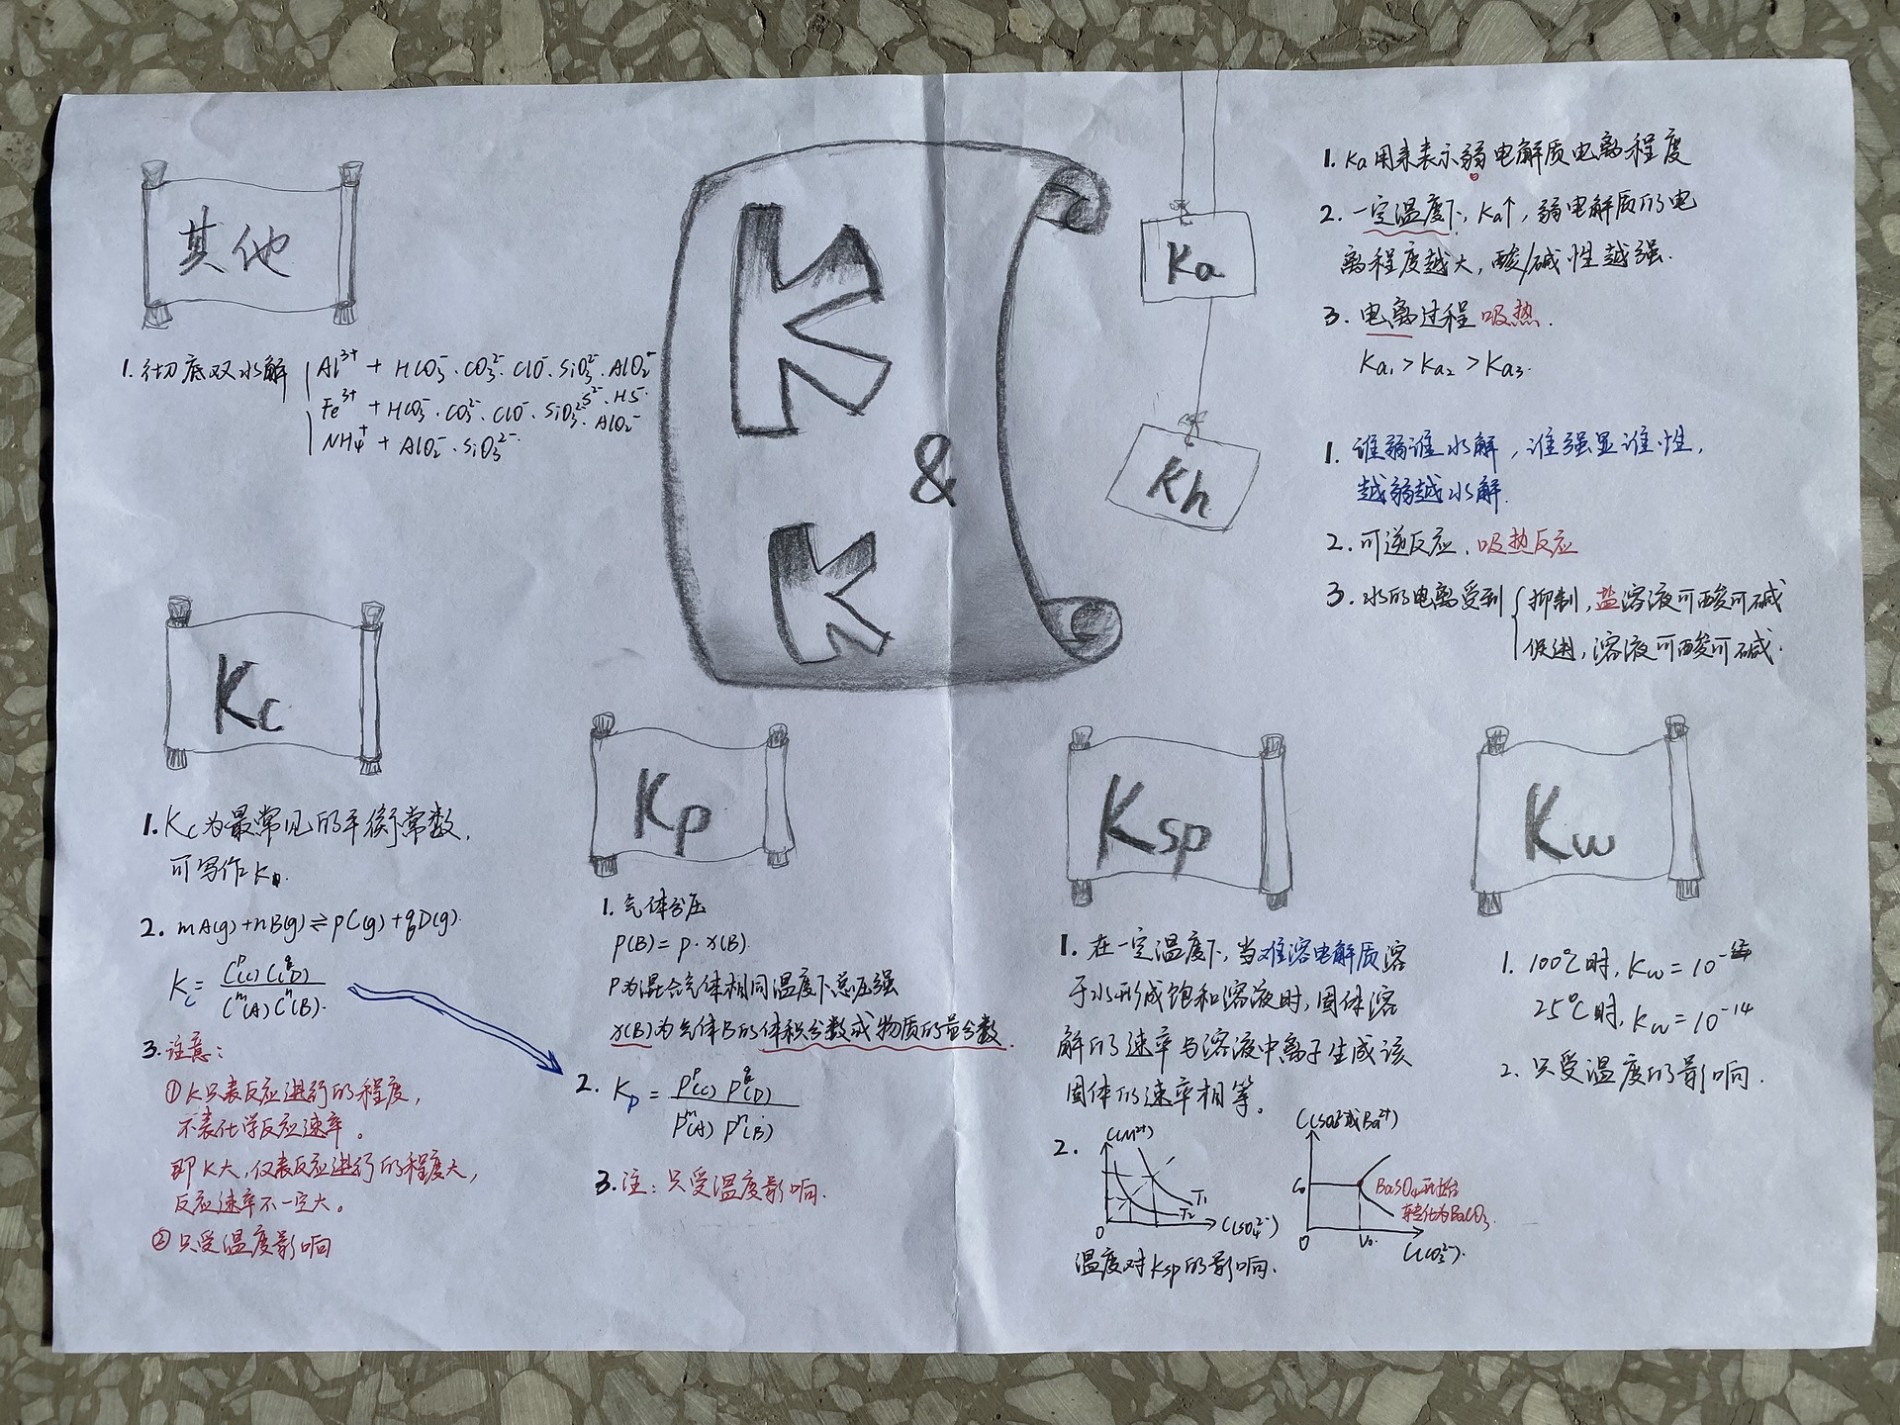 其他
1. 彻底双水解
Al³⁺ + HCO₃⁻·CO₃²⁻·ClO⁻·SiO₃²⁻·AlO₂⁻
S²⁻·HS⁻
Fe³⁺ + HCO₃⁻·CO₃²⁻·ClO⁻·SiO₃²⁻·AlO₂⁻
NH₄⁺ + AlO₂⁻·SiO₃²⁻
K
&
K
Ka
1. Ka用来表示弱电解质电离程度
2. 一定温度下, Ka↑, 弱电解质的电
离程度越大, 酸/碱性越强.
3. 电离过程吸热.
Ka₁ > Ka₂ > Ka₃.
Kh
1. 谁弱谁水解, 谁强显谁性,
越弱越水解.
2. 可逆反应、吸热反应
3. 水的电离受到
抑制, 盐溶液可酸可碱
促进, 溶液可酸可碱.
Kc
1. Kc为最常见的平衡常数,
可写作K.
2. mA(g)+nB(g)⇌pC(g)+qD(g).
Kc = Cᵖ(C) C^q(D) / Cᵐ(A) Cⁿ(B).
3. 注意:
①K只表反应进行的程度,
不表化学反应速率。
即K大, 仅表反应进行的程度大,
反应速率不一定大。
②只受温度影响
Kp
1. 气体分压
P(B) = P·x(B).
P为混合气体相同温度下总压强
x(B)为气体B的体积分数或物质的量分数.
2. Kp = Pᵖ(C) P^q(D) / Pᵐ(A) Pⁿ(B)
3. 注: 只受温度影响.
Ksp
1. 在一定温度下, 当难溶电解质溶
于水形成饱和溶液时, 固体溶
解的速率与溶液中离子生成该
固体的速率相等。
2.
C(M²⁺)
T₁
T₂
0
C(SO₄²⁻)
温度对Ksp的影响.
C(SO₄²⁻或Ba²⁺)
C₀
BaSO₄开始
转化为BaCO₃.
0
V₀
C(CO₃²⁻).
Kw
1. 100℃时, Kw = 10⁻
25℃时, Kw = 10⁻¹⁴
2. 只受温度的影响.